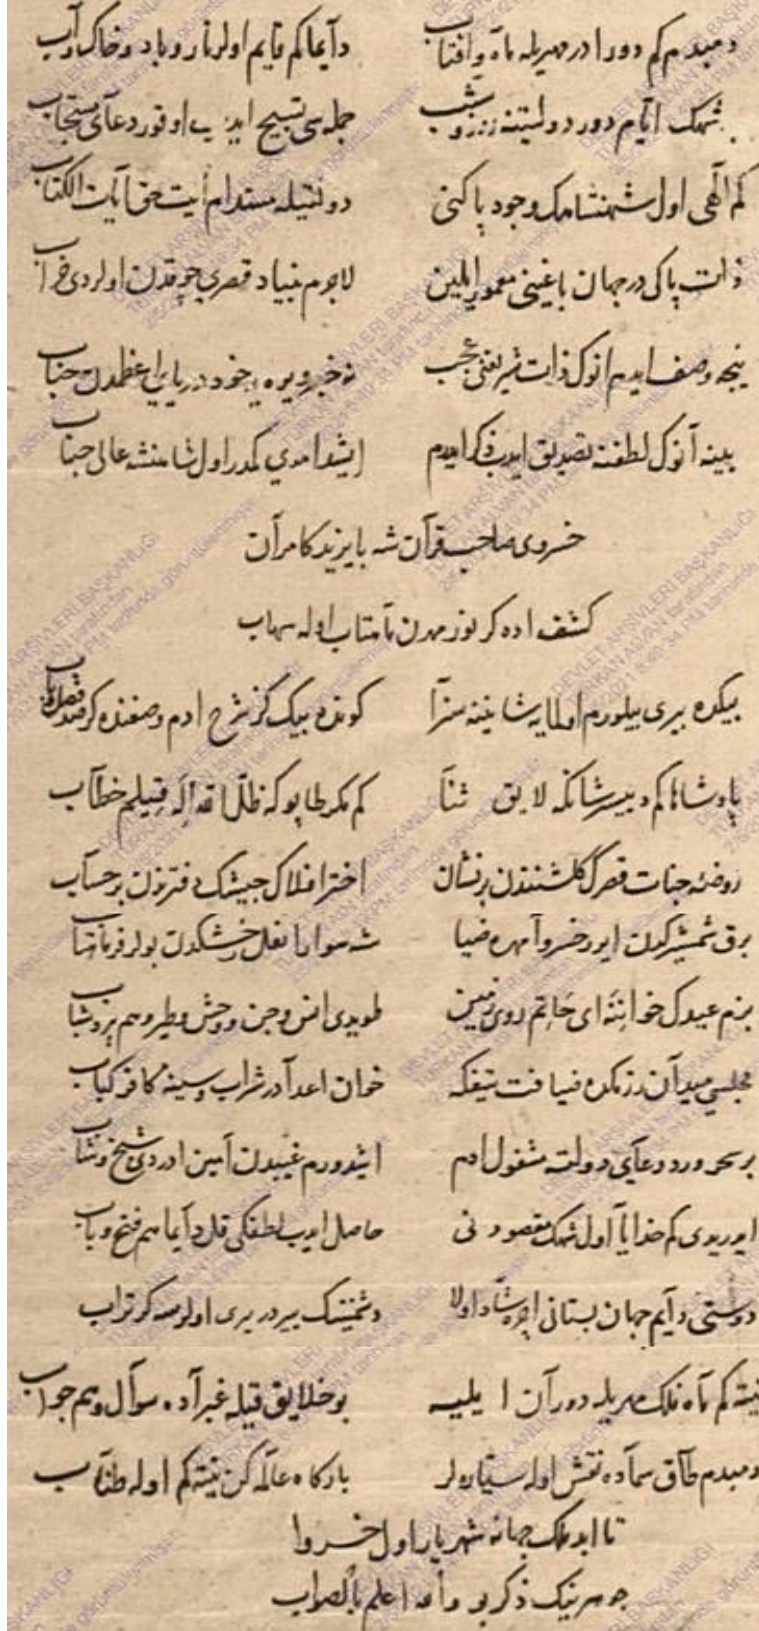 دمبدم کم دورا در مهریله ماه و آفتاب دآیما کم قایم اولر نار و باد و خاک و آب
شهک ایام دور دولتنه روز و شب جمله سی تسبیح ایدیب اوقور دعآی مستجاب
کم الهی اول شهنشاهک وجود پاکنی دولتیله مستدام ایت حق آیات الکتاب
ذات پاکی در جهان باغینی معمور ایلین لاجرم بنیاد قصری جوقدن اولردی خراب
نیجه وصف ایدم انوک ذات شریفنی عجب نه خبر ویره
ینه آنوک لطفنه تصدیق ایدب ذکر ایدم ایشد امدی کمدر اول شاهنشه عالی جناب
خسروی صاحب قرآن شه بایزید کامرآن
کشف اده کر نوز مهرن مآهتاب اوله سهاب
بیکده بیری بیلورم اولمایه شانینه سزآ کونده بیک کز شرح ادم وصفنده کر صد فصل باب
پادشاها کم دییسر شانکه لایق ثنآ کم مکر طاپوکه ظل الله قیلم خطآب
روضه جنات قصرک کلشنندن بر نشان اختر افلاک جیشک دفترندن بر حسآب
برق شمشیرکدن ایرر خسروآ مهره ضیا شه سوارا نعل رخشکدن بولر فر مآهتاب
بزم عیدک خوانینه ای حاتم روی زمین طویدی انس و جن و وحش و طیر و هم
مجلسی میدآن رزمکده ضیافت تیغکه خوان اعدآدر شراب و سینه کافر کباب
بر سحر ورد دعآی دولته مشغول ادم ایشدورم غیبدن آمین ادردی شیخ و شاب
ایدریدی کم خدایآ اول شهک مقصودنی حاصل ایدب لطفکی قل دآیما هم فتح باب
دوستی دآیم جهان بستانی ایچره شاد اولا دشمنینک ییردر یری اولرسه کر تراب
نیته کم مآه فلک مهریله دورآن ایلیه بو خلایق قیله غبرآده سوآل و هم جواب
دمبدم طآق سمآده نقش اوله سیاره لر بارکاه عالمه کن نیته کم اوله طنآب
تا ابد ملک جهانه شهریار اول خسروا
جوهرینک ذکر بو والله اعلم بالصواب